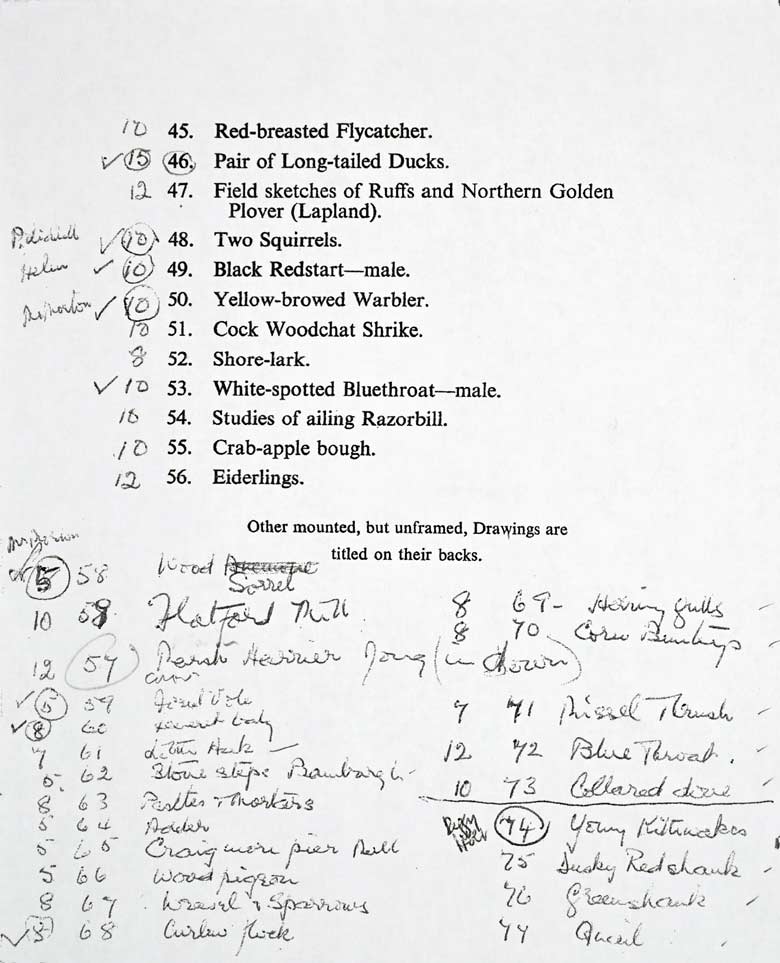 10 45. Red-breasted Flycatcher.
✓ 15 46. Pair of Long-tailed Ducks.
12 47. Field sketches of Ruffs and Northern Golden
Plover (Lapland).
✓ 10 48. Two Squirrels.
Helen ✓ 10 49. Black Redstart—male.
Mrs Norton ✓ 10 50. Yellow-browed Warbler.
10 51. Cock Woodchat Shrike.
8 52. Shore-lark.
✓ 10 53. White-spotted Bluethroat—male.
10 54. Studies of ailing Razorbill.
10 55. Crab-apple bough.
12 56. Eiderlings.
Other mounted, but unframed, Drawings are
titled on their backs.
5 58 Wood Anemone
Sorrel
10 58 Flatford Mill
12 57 Marsh Harrier Young (in down)
✓ 5 59 Vole
✓ 8 60
7 61 Little Auk
5 62 Stone steps Bamburgh
8 63
5 64 Adder
5 65 Craigmore pier Mull
5 66 Wood pigeon
8 67 Weasel & Sparrows
✓ 8 68 Curlew flock
8 69 Herring gulls
8 70 Corn Buntings
7 71 Missel Thrush
12 72 Blue Throat.
10 73 Collared dove
74 Young Kittiwakes
75 Dusky Redshank
76 Greenshank
77 Quail